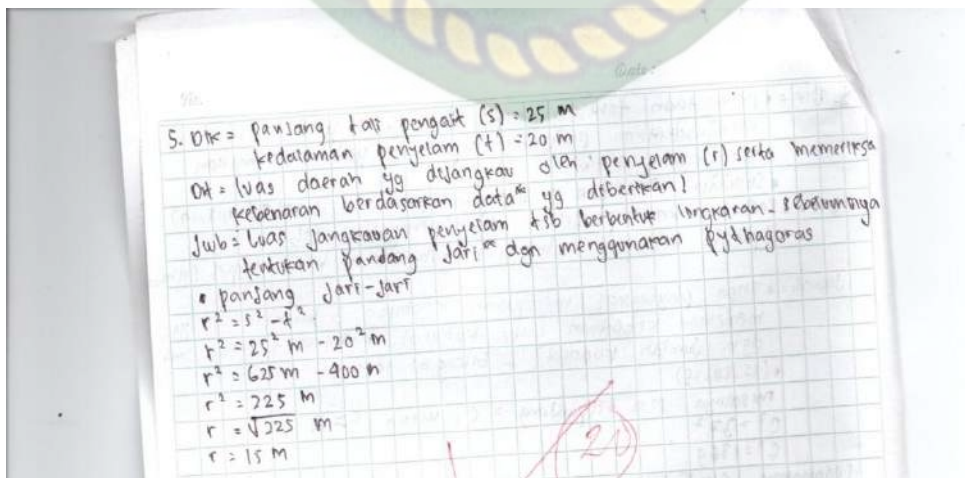 No.
Date:
5. Dik = panjang tali pengait (s) = 25 m
kedalaman penyelam (t) = 20 m
Dit = luas daerah yg dijangkau oleh penyelam (r) serta memeriksa
kebenaran berdasarkan data² yg diberikan!
Jwb = Luas jangkauan penyelam tsb berbentuk lingkaran. sebelumnya
tentukan pandang jari² dgn menggunakan pythagoras
• panjang jari-jari
r² = s² - t²
r² = 25² m - 20² m
r² = 625 m - 400 m
r² = 225 m
r = √225 m
r = 15 m
20